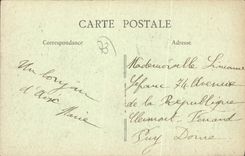 CARTE POSTALE
Correspondance
Adresse
Un bonjour
d'
Marie
Mademoiselle
74 Avenue
de la République
Clermont Ferrand
Puy Dome